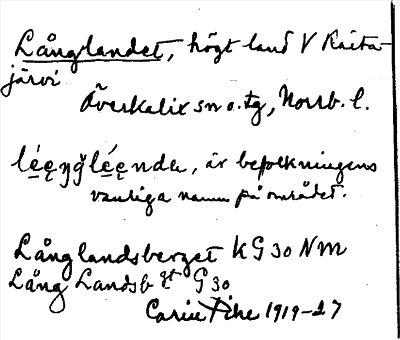 Långlandet, högt land V Raita-
järvi
Överkalix sn o. tg, Norrb. l.
léęŋg̊léęnda, är befolkningens
vanliga namn på området.
Långlandsberget KG 30 NM
Lång Landsb gt G 30
1919-27